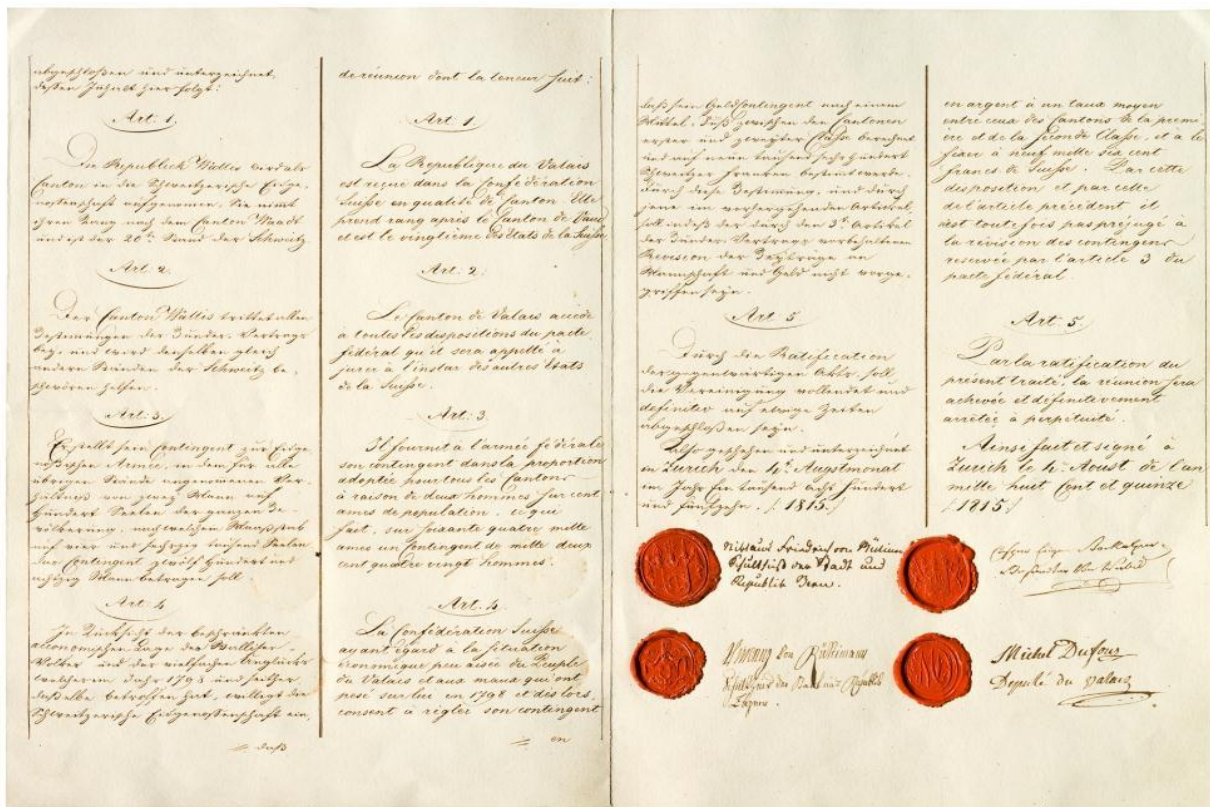 abgeschloßen und unterzeichnet,
dessen Inhalt hier folgt:
Art: 1.
Die Republick Wallis wird als
Canton in die Schweitzerische Eidge-
nossenschaft aufgenommen. Sie nimmt
ihren Rang nach dem Canton Waadt
und ist der 20te. Stand der Schweitz
Art: 2.
Der Canton Wallis trittet allen
Bestimmungen der Bundes-Vertrags
bey, und wird denselben gleich
andern Ständen der Schweitz be-
schwören helfen.
Art: 3.
Er stellt sein Contingent zur Eidge-
nößischen Armee, in dem für alle
übrigen Stände angenommenen Ver-
hältniß von zwey Mann auf
hundert Seelen der ganzen Be-
völkerung, nach welchem Maaßstab
auf vier und sechzig tausend Seelen
das Contingent zwölf hundert und
achtzig Mann betragen soll.
Art. 4
In Rücksicht der beschränkten
œconomischen Lage des Walliser-
Volkes und der vielfachen Unglücks
welches im Jahr 1798 und seither
dasselbe betroffen hat, willigt die
Schweitzerische Eidgenossenschaft ein,
daß
de réunion dont la teneur suit:
Art: 1.
La République du Valais
est reçue dans la Confédération
Suisse en qualité de Canton. Elle
prend rang après le Canton de Vaud
et est le vingtième des états de la Suisse
Art: 2.
Le Canton de Valais accède
à toutes les dispositions du pacte
fédéral qu'il sera appellé à
jurer à l'instar des autres états
de la Suisse.
Art: 3.
Il fournit à l'armée fédérale
son contingent dans la proportion
adoptée pour tous les Cantons
à raison de deux hommes sur cent
ames de population, ce qui
fait, sur soixante quatre mille
ames un contingent de mille deux
cent quatre vingt hommes.
Art: 4.
La Confédération Suisse
ayant égard à la situation
économique peu aisée du Peuple
du Valais et aux maux qui ont
pesé sur lui en 1798 et dès lors,
consent à régler son contingent
en
daß sein Geldcontingent nach einem
Mittel-Fuß zwischen den Cantonen
erster und zweyter Classe berechnet
und auf neun tausend sechs hundert
Schweitzer Franken bestimt werde.
Durch diese Bestimung, und durch
jene im vorhergehenden Artikel,
soll indeß der durch den 3ten. Artikel
der Bundes-Vertrags vorbehaltenen
Revision der Beyträge an
Mannschaft und Geld nicht vorge-
griffen seyn.
Art: 5
Durch die Ratification
der gegenwärtigen Akte, soll
die Vereinigung vollendet und
definitiv auf ewige Zeiten
abgeschloßen seyn.
Also geschehen und unterzeichnet
in Zurich den 4t. Augstmonat
im Jahr Ein tausend acht hundert
und fünfzehn. /:1815:/
en argent à un taux moyen
entre ceux des Cantons de la premi-
ère et de la seconde Classe, et à le
fixer à neuf mille six cent
francs de Suisse. Par cette
disposition et par cette
de l'article précédent il
n'est toutefois pas préjugé à
la révision des contingens
réservée par l'article 3 du
pacte fédéral.
Art: 5.
Par la ratification du
présent traité, la réunion sera
achevée et définitivement
arrêtée à perpétuité.
Ainsi fait et signé à
Zurich le 4. Aoust de l'an
mille huit Cent et quinze
/:1815:/
Niklaus Friedrich von
Schultheiß der Stadt und
Republik Bern.
von Rüttimann
Schultheiß der Republik
Michel Dufour
Député du Valais